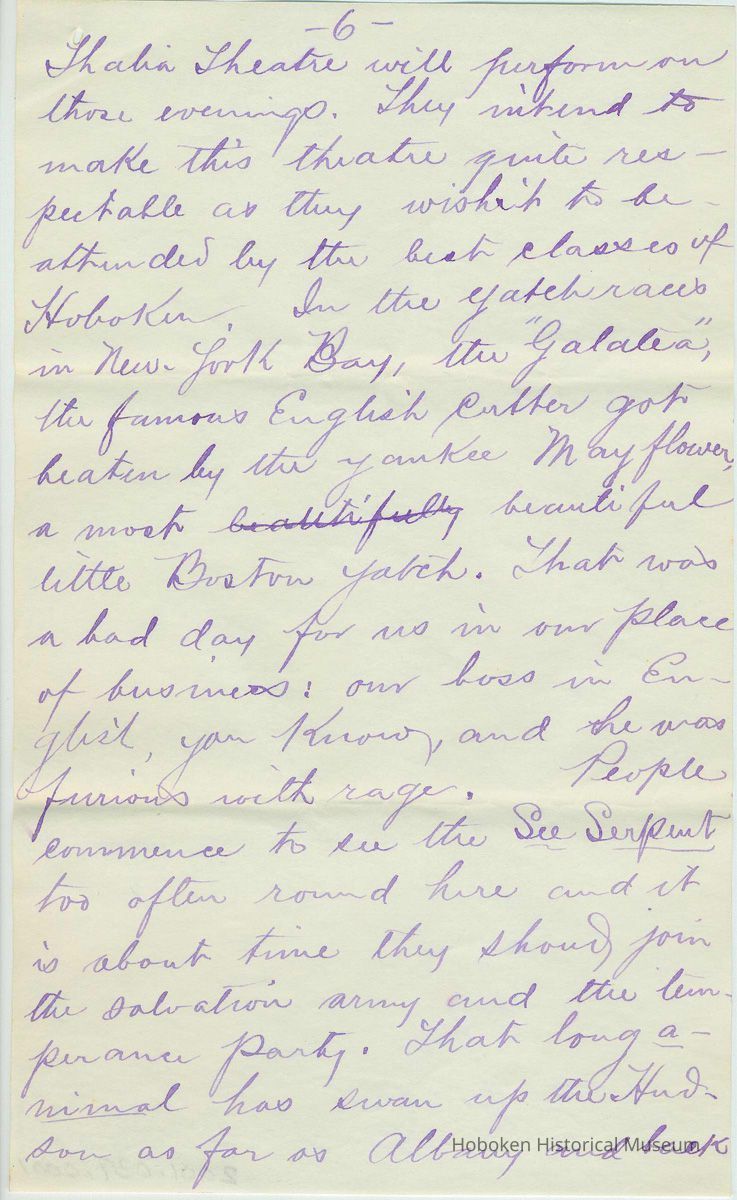 -6-
Thalia Theatre will perform on
those evenings. They intend to
make this theatre quite res-
pectable as they wish it to be
attended by the best classes of
Hoboken. In the yatch races
in New-York Bay, the "Galatea",
the famous English cutter got
beaten by the yankee Mayflower,
a most beautifully beautiful
little Boston yatch. That was
a bad day for us in our place
of business: our boss in En-
glish, you know, and he was
furious with rage. People
commence to see the See Serpent
too often round here and it
is about time they should join
the salvation army and the tem-
perance party. That long a-
nimal has swam up the Hud-
son as far as Albany and back
Hoboken Historical Museum